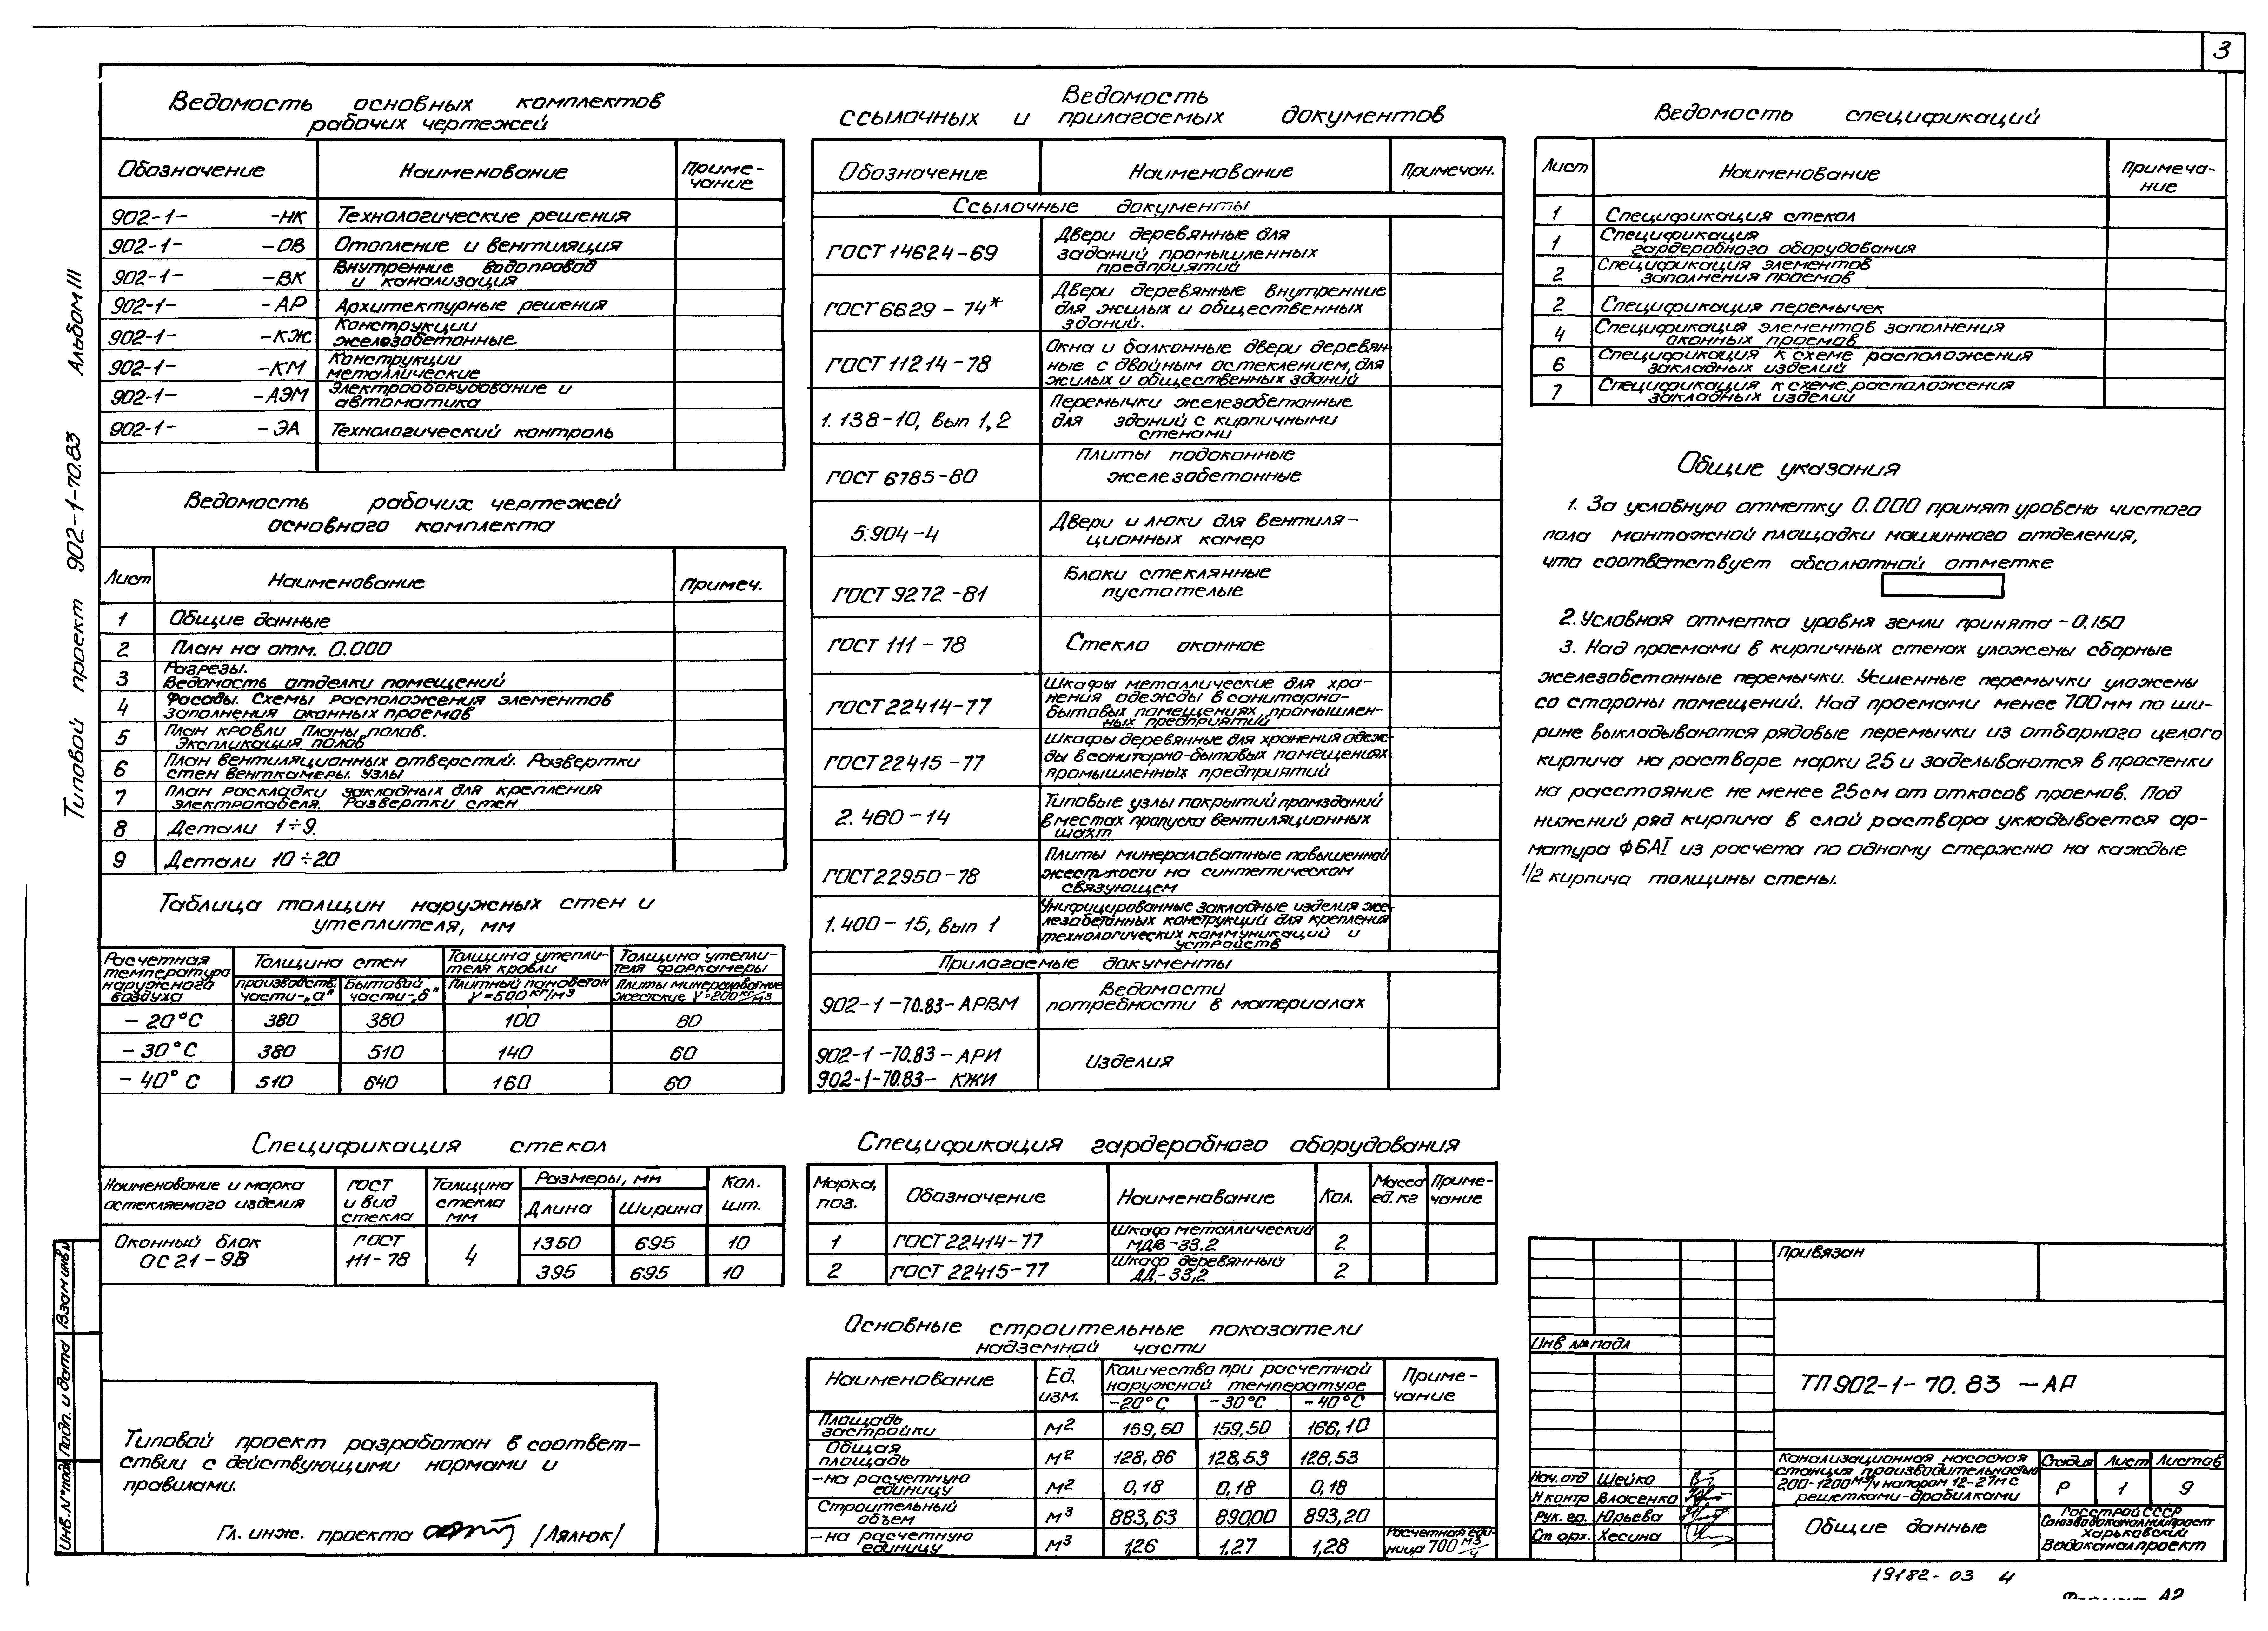 3
Типовой проект 902-1-70.83 Альбом III
Ведомость основных комплектов
рабочих чертежей
Обозначение Наименование Приме-
чание
902-1- -НК Технологические решения
902-1- -ОВ Отопление и вентиляция
902-1- -ВК Внутренние водопровод
и канализация
902-1- -АР Архитектурные решения
902-1- -КЖ Конструкции
железобетонные
902-1- -КМ Конструкции
металлические
902-1- -АЭМ Электрооборудование и
автоматика
902-1- -ЭА Технологический контроль
Ведомость рабочих чертежей
основного комплекта
Лист Наименование Примеч.
1 Общие данные
2 План на отм. 0.000
3 Разрезы.
Ведомость отделки помещений
4 Фасады. Схемы расположения элементов
заполнения оконных проемов
5 План кровли Планы полов.
Экспликация полов
6 План вентиляционных отверстий. Развертки
стен венткамеры. Узлы
7 План раскладки закладных для крепления
электрокабеля. Развертки стен
8 Детали 1÷9.
9 Детали 10÷20
Таблица толщин наружных стен и
утеплителя, мм
Расчетная
температура
наружного
воздуха
Толщина стен
производств.
части-„а"
Бытовой
части-„б"
Толщина утепли-
теля кровли
Плитный пенобетон
γ=500 кг/м3
Толщина утепли-
теля форкамеры
Плиты минераловатные
жесткие γ=200 кг/м3
-20°С 380 380 100 60
-30°С 380 510 140 60
-40°С 510 640 160 60
Спецификация стекол
Наименование и марка
остекляемого изделия
ГОСТ
и вид
стекла
Толщина
стекла
мм
Размеры, мм
Длина Ширина
Кол.
шт.
Оконный блок
ОС 21-9В
ГОСТ
111-78
4
1350 695 10
395 695 10
Типовой проект разработан в соответ-
ствии с действующими нормами и
правилами.
Гл. инж. проекта /Лялюк/
Взам инв №
Подп. и дата
Инв. № подл
Ведомость
ссылочных и прилагаемых документов
Обозначение Наименование Примечан.
Ссылочные документы
ГОСТ 14624-69 Двери деревянные для
заданий промышленных
предприятий
ГОСТ 6629-74* Двери деревянные внутренние
для жилых и общественных
зданий.
ГОСТ 11214-78 Окна и балконные двери деревян-
ные с двойным остеклением, для
жилых и общественных зданий
1.138-10, вып 1,2 Перемычки железобетонные
для зданий с кирпичными
стенами
ГОСТ 6785-80 Плиты подоконные
железобетонные
5.904-4 Двери и люки для вентиля-
ционных камер
ГОСТ 9272-81 Блоки стеклянные
пустотелые
ГОСТ 111-78 Стекло оконное
ГОСТ 22414-77 Шкафы металлические для хра-
нения одежды в санитарно-
бытовых помещениях промышлен-
ных предприятий
ГОСТ 22415-77 Шкафы деревянные для хранения одеж-
ды в санитарно-бытовых помещениях
промышленных предприятий
2.460-14 Типовые узлы покрытий промзданий
в местах пропуска вентиляционных
шахт
ГОСТ 22950-78 Плиты минераловатные повышенной
жесткости на синтетическом
связующем
1.400-15, вып 1 Унифицированные закладные изделия же-
лезобетонных конструкций для крепления
технологических коммуникаций и
устройств
Прилагаемые документы
902-1-70.83-АРВМ Ведомости
потребности в материалах
902-1-70.83-АРИ
902-1-70.83-КЖИ
Изделия
Спецификация гардеробного оборудования
Марка,
поз.
Обозначение Наименование Кол. Масса
ед. кг
Приме-
чание
1 ГОСТ 22414-77 Шкаф металлический
МДВ-33.2 2
2 ГОСТ 22415-77 Шкаф деревянный
ДД-33,2 2
Основные строительные показатели
надземной части
Наименование Ед.
изм.
Количество при расчетной
наружной температуре
-20°С -30°С -40°С
Приме-
чание
Площадь
застройки м2 159,50 159,50 166,10
Общая
площадь м2 128,86 128,53 128,53
-на расчетную
единицу м2 0,18 0,18 0,18
Строительный
объем м3 883,63 890,00 893,20
-на расчетную
единицу м3 1,26 1,27 1,28 Расчетная еди-
ница 700 м3/ч
Ведомость спецификаций
Лист Наименование Примеча-
ние
1 Спецификация стекол
1 Спецификация
гардеробного оборудования
2 Спецификация элементов
заполнения проемов
2 Спецификация перемычек
4 Спецификация элементов заполнения
оконных проемов
6 Спецификация к схеме расположения
закладных изделий
7 Спецификация к схеме расположения
закладных изделий
Общие указания
1. За условную отметку 0.000 принят уровень чистого
пола монтажной площадки машинного отделения,
что соответствует абсолютной отметке
2. Условная отметка уровня земли принята -0.150
3. Над проемами в кирпичных стенах уложены сборные
железобетонные перемычки. Усиленные перемычки уложены
со стороны помещений. Над проемами менее 700 мм по ши-
рине выкладываются рядовые перемычки из отборного целого
кирпича на растворе марки 25 и заделываются в простенки
на расстояние не менее 25см от откосов проемов. Под
нижний ряд кирпича в слой раствора укладывается ар-
матура Ф6АI из расчета по одному стержню на каждые
1/2 кирпича толщины стены.
Привязан
Инв № подл
ТП 902-1-70.83 -АР
Нач. отд Шейко
Н контр Власенко
Рук. гр. Юрьева
Ст арх. Хесина
Канализационная насосная
станция производительностью
200-1200 м3/ч напором 12-27м с
решетками-дробилками
Стадия Лист Листов
Р 1 9
Общие данные
Госстрой СССР
Союзводоканалниипроект
Харьковский
Водоканалпроект
19182-03 4
Формат А2